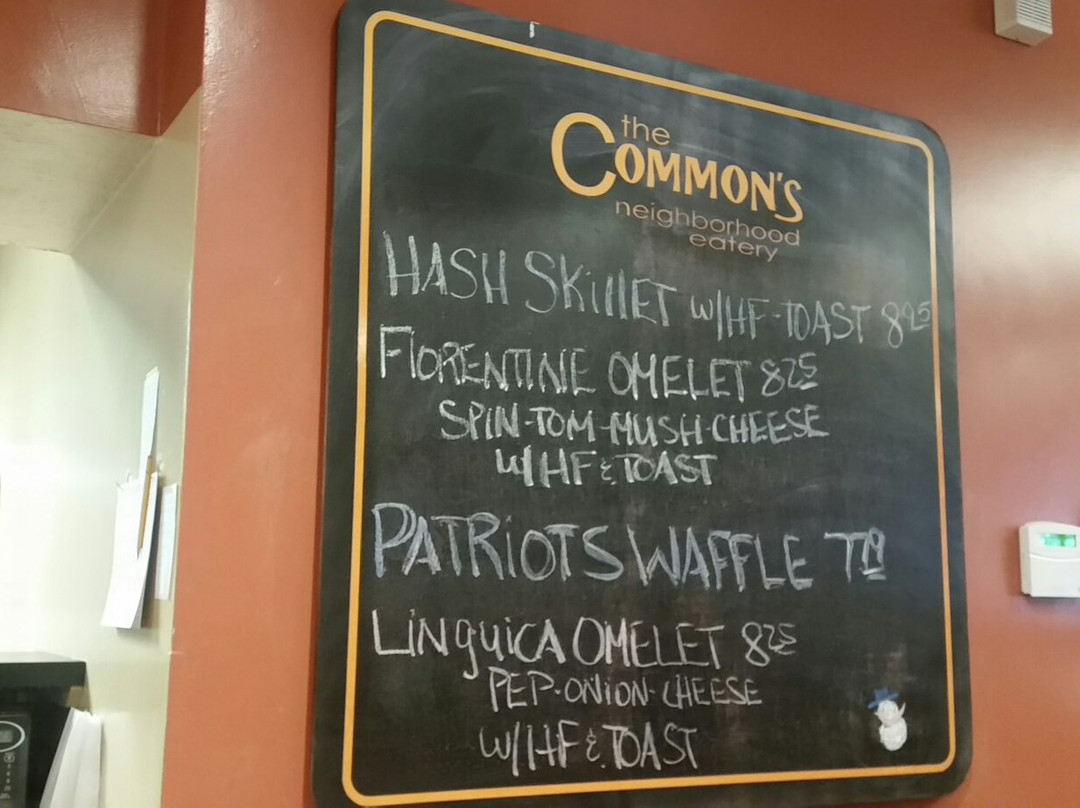 the
COMMON'S
neighborhood
eatery
HASH SKillET w/HF-TOAST 895
FlORENTINE OMELET 825
SPIN-TOM-MUSH-CHEESE
W/HF & TOAST
PATRiOTS WAFFLE
LiNguiCA OMELET 825
PEP-ONiON-CHEESE
W/HF & TOAST